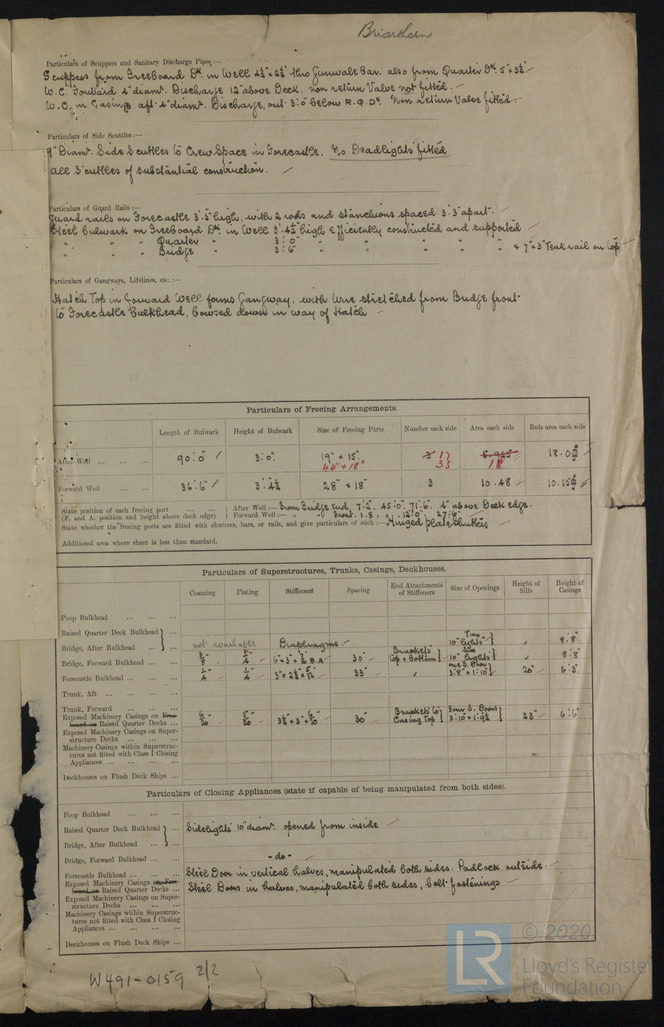 Briarthorn
Particulars of Scuppers and Sanitary Discharge Pipes:—
Scuppers from Freeboard Dk. in Well 4½" × 2½" thro Gunwale Bar. also from Quarter Dk. 5" × 3½"
W.C. Forward 4" diamr. Discharge 12" above Deck. non return Valve not fitted.
W.C. in Casing aft. 4" diamr. Discharge, out 3'.0" below R.Q.Dk. Non return Valve fitted.
Particulars of Side Scuttles:—
Diamr. Side Scuttles to Crew Space in Forecastle. No Deadlights fitted
all Scuttles of substantial construction.
Particulars of Guard Rails:—
Guard rails on Forecastle 3'.5" high, with 2 rods and stanchions spaced 3'.3" apart.
Steel bulwark on Freeboard Dk. in Well 3'.4½" high efficiently constructed and supported
" " " Quarter " 3'.0" " " " " "
" " " Bridge " 3'.6" " " " " " & 7" × 3" Teak rail on top
Particulars of Gangways, Lifelines, etc.:—
Hatch Top in forward Well forms Gangway, with Wire stretched from Bridge front
to Forecastle bulkhead, bowsed down in way of Hatch
Particulars of Freezing Arrangements.
Length of Bulwark Height of Bulwark Size of Freeing Ports Number each side Area each side Rule area each side
After Well ... 90'.0" 3'.0" 19" × 15" 3 5.925 18.0
44" × 18" 33 18
Forward Well ... 36'.6" 3'.4½" 28" × 18" 3 10.48 10.15
State position of each freeing port (F. and A. position and height above deck edge)
After Well:— From Bridge End, 7'.2", 45'.0", 71'.6". 4" above Deck edge.
Forward Well:— " " Front. 1'.8", 12'.0", 27'.6"
State whether the freeing ports are fitted with shutters, bars, or rails, and give particulars of such:— Hinged plate shutters
Additional area where sheer is less than standard.
Particulars of Superstructures, Trunks, Casings, Deckhouses.
Coaming Plating Stiffeners Spacing End Attachments of Stiffeners Size of Openings Height of Sills Height of Casings
Poop Bulkhead ...
Raised Quarter Deck Bulkhead
Bridge, After Bulkhead ... not available Diaphragms. Two 10" Lights 8'.8"
Bridge, Forward Bulkhead ... 6" × 3" B.A 30" Brackets top & bottom 10" Lights 8'.8"
Forecastle Bulkhead ... 33" 3'.8" × 1'.10" 20" 6'.3"
Trunk, Aft ...
Trunk, Forward ...
Exposed Machinery Casings on Raised Quarter Decks ... 6/20 30" Brackets to Casing Top Four S. Doors 23" 6'.6"
Exposed Machinery Casings on Superstructure Decks ...
Machinery Casings within Superstructures not fitted with Class I Closing Appliances ...
Deckhouses on Flush Deck Ships ...
Particulars of Closing Appliances (state if capable of being manipulated from both sides).
Poop Bulkhead ...
Raised Quarter Deck Bulkhead
Sidelights 10" diamr. opened from inside
Bridge, After Bulkhead ...
Bridge, Forward Bulkhead ... - do -
Forecastle Bulkhead ... Steel Door in vertical halves, manipulated both sides. Padlock outside.
Exposed Machinery Casings on Raised Quarter Decks ... Steel Doors in halves, manipulated both sides, bolt fastenings
Exposed Machinery Casings on Superstructure Decks ...
Machinery Casings within Superstructures not fitted with Class I Closing Appliances ...
Deckhouses on Flush Deck Ships ...
W491-0159 2/2
LR
© 2020
Lloyd's Register
Foundation